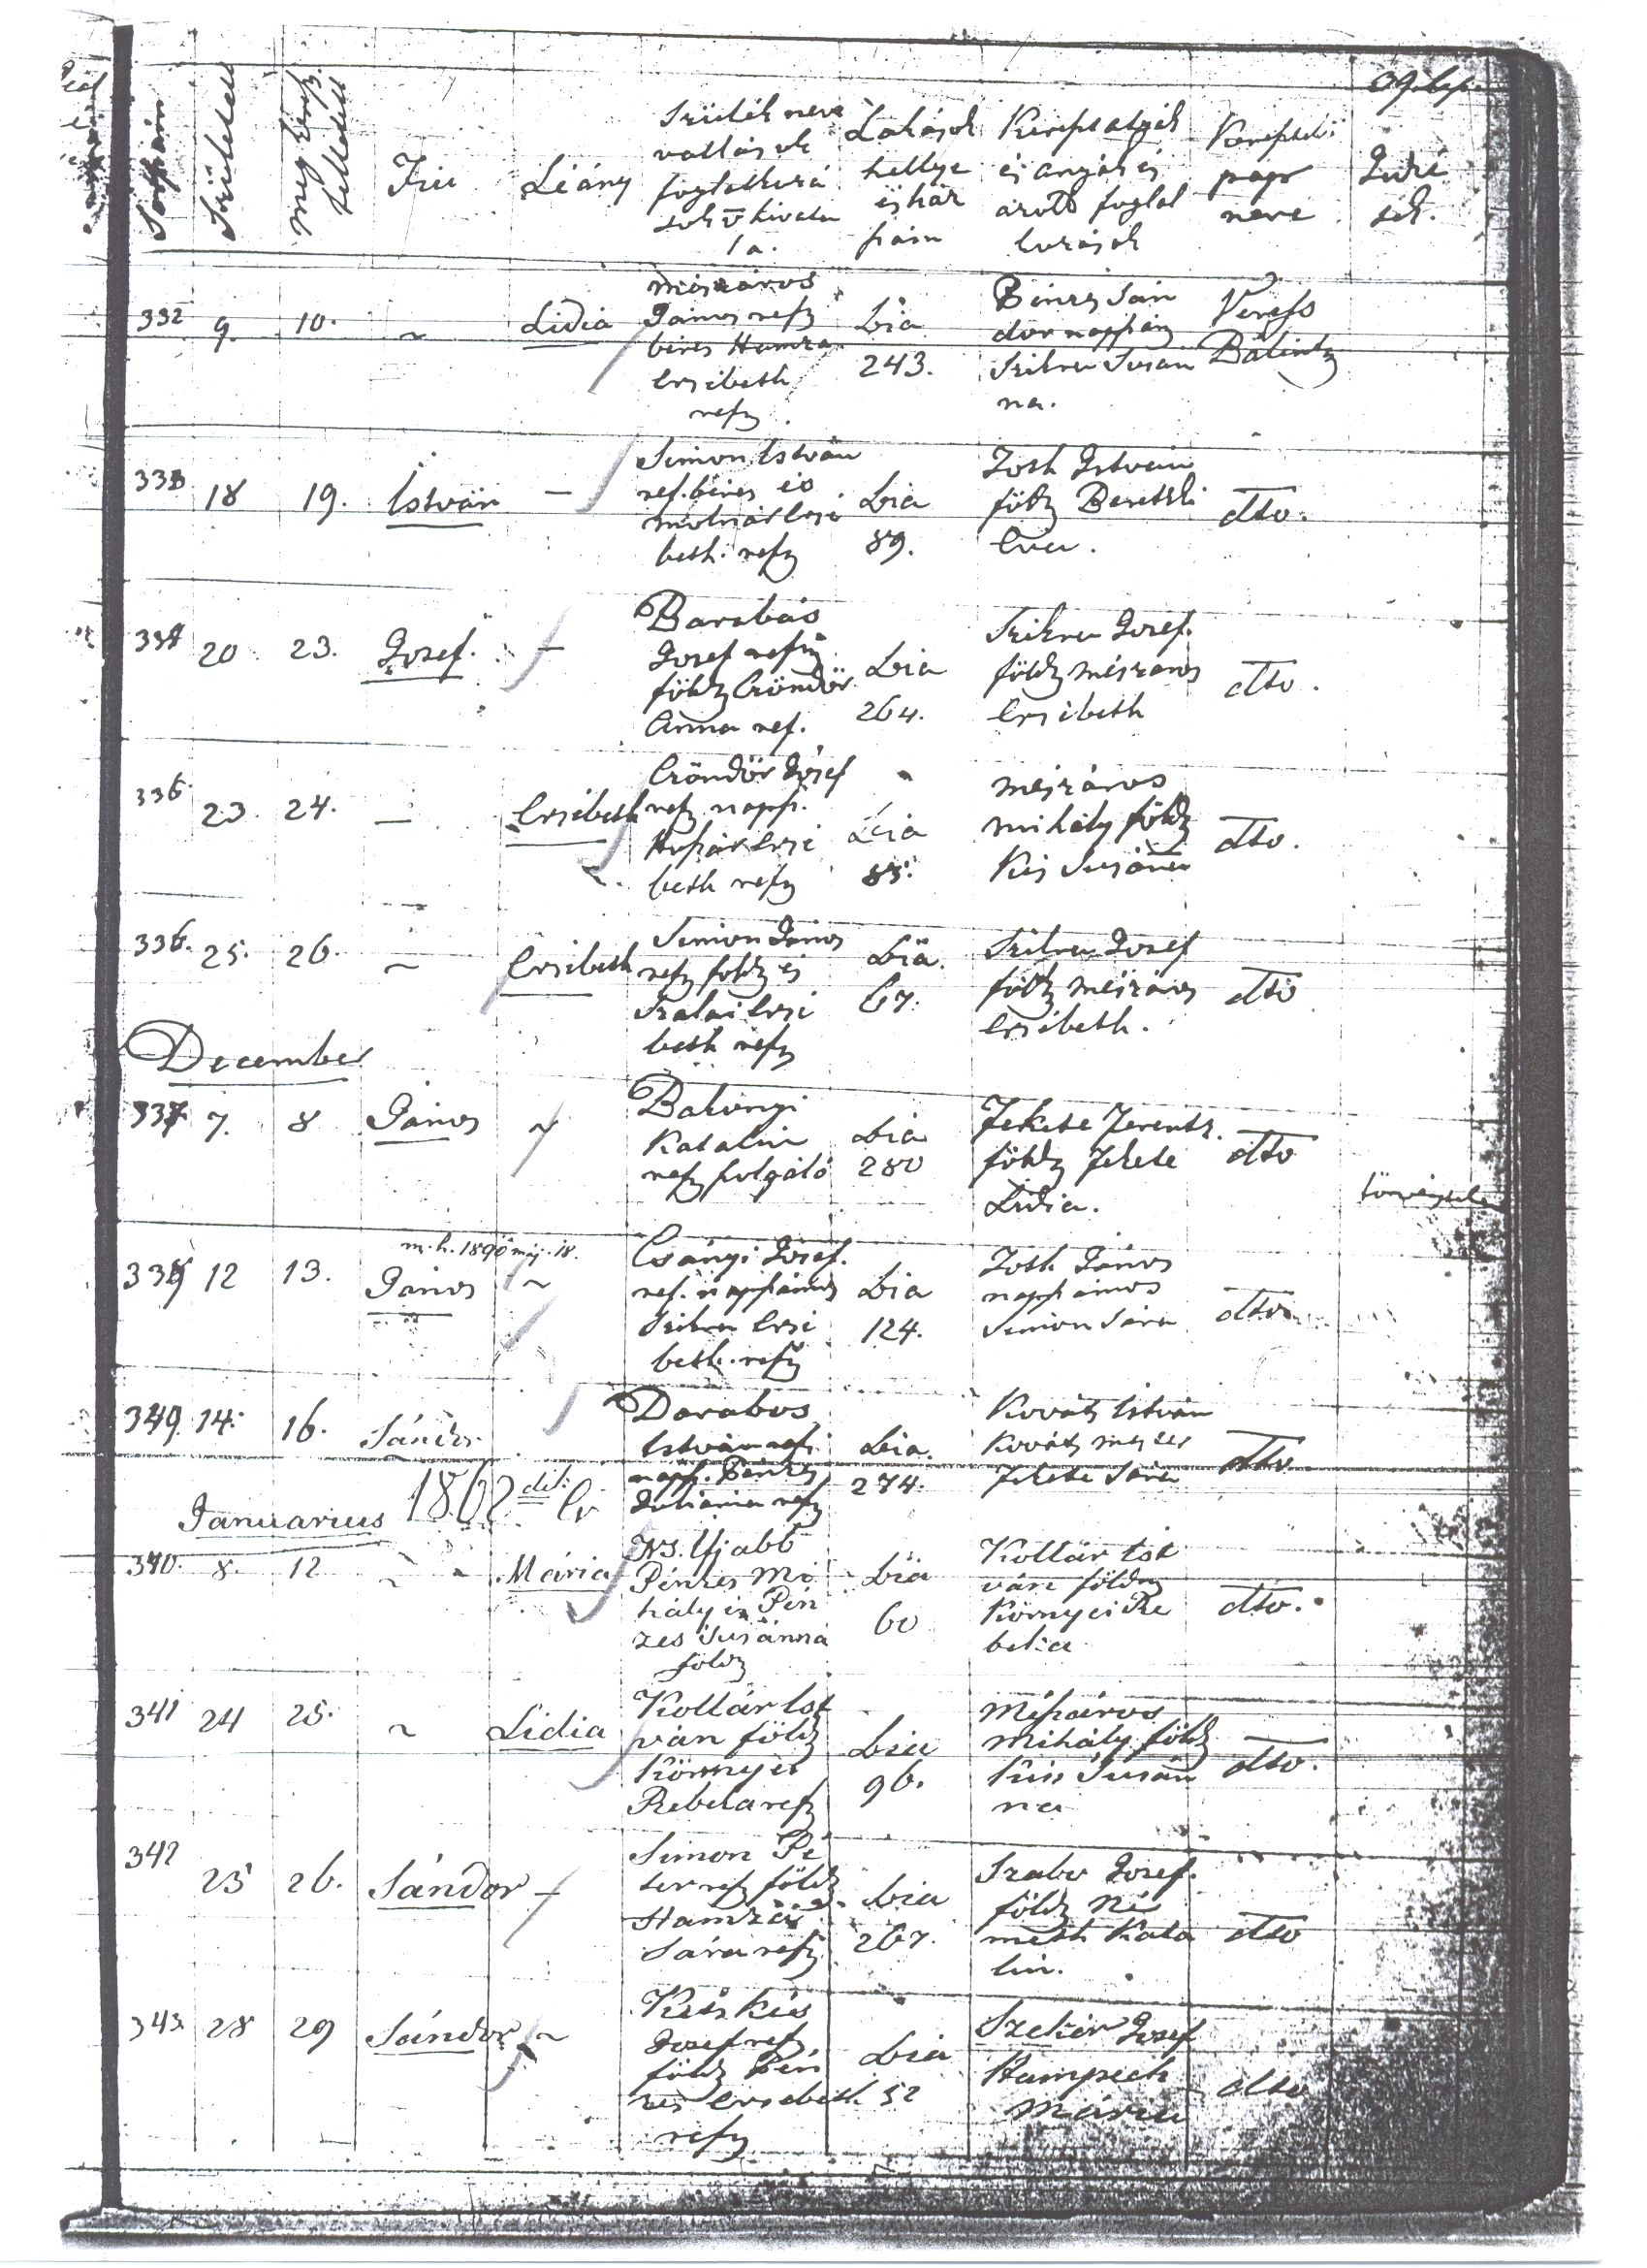 39. lap.
Fiú
Leány
Szülék neve
vallások
foglalkozá
sok v hivata
la.
Lakások
hellye
és ház
szám
Keresztatyák
és anyák és
azok foglal
kozások
Keresztelő
pap
neve
332
9.
10.
~
Lidia
Mészáros
János refz
béres Hamza
Ersébeth
refz
Bia
243.
Pénzes Sán
dor napszám
Szilvu Susán
na.
Veress
Bálint
333
18
19.
István
—
Simon István
ref. béres és
Molnár Ersé
beth. refz
Bia
89.
Toth István
földz Beretzki
Eva.
dto.
334
20
23.
Josef.
—
Barabás
Josef refz
földz Czöndör
Anna ref.
Bia
264.
Josef.
földz Mészáros
Ersébeth
dto.
336.
23.
24.
—
Ersébeth
Czöndör Josef
refz napsz.
Huszár Ersé
beth refz
Bia
85.
Mészáros
Mihály földz
Kis Susánna
dto.
336.
25.
26.
~
Ersébeth
Simon János
refz földz és
Szalai Ersé
beth refz
Bia.
67.
Josef
földz Mészáros
Ersébeth.
dto
December
337
7.
8
János
~
Bakonyi
Katalin
refz szolgáló
Bia
280
Fekete Ferentz.
földz Fekete
Lidia.
dto
törvénytelen
m. h. 1890 máj. 18.
12
13.
János
~
Csányi Josef.
ref. napszámos
Ersé
beth. refz
Bia
124.
Toth János
napszámos
Simon Sára
dto.
14.
16.
Sándor
Darabos
István ref.
napsz. Pénzes
Juliánna refz
Bia.
274.
Kováts István
Kováts mester
Fekete Sára
dto
Januarius 1862 dik Év
340.
8.
12
~
Mária
NS. Ujabb
Pénzes Mi
hály és Pén
zes Susánna
földz
Bia
60
Kollár Ist
ván földz
Környei Re
beka
dto.
341
24
25.
~
Lidia
Kollár Ist
ván földz
Környei
Rebeka refz
Bia
96.
Mészáros
Mihály földz
Kiss Susán
na
dto.
342
25
26.
Sándor
—
Simon Pé
ter refz földz
Hamzai
Sára refz
Bia
267.
Szabo Josef.
földz Né
meth Kata
lin.
dto
343
28
29
Sándor
~
Kis
Josef refz
földz Pén
zes Ersebeth
refz
Bia
52
Szekér Josef
Mária
dto